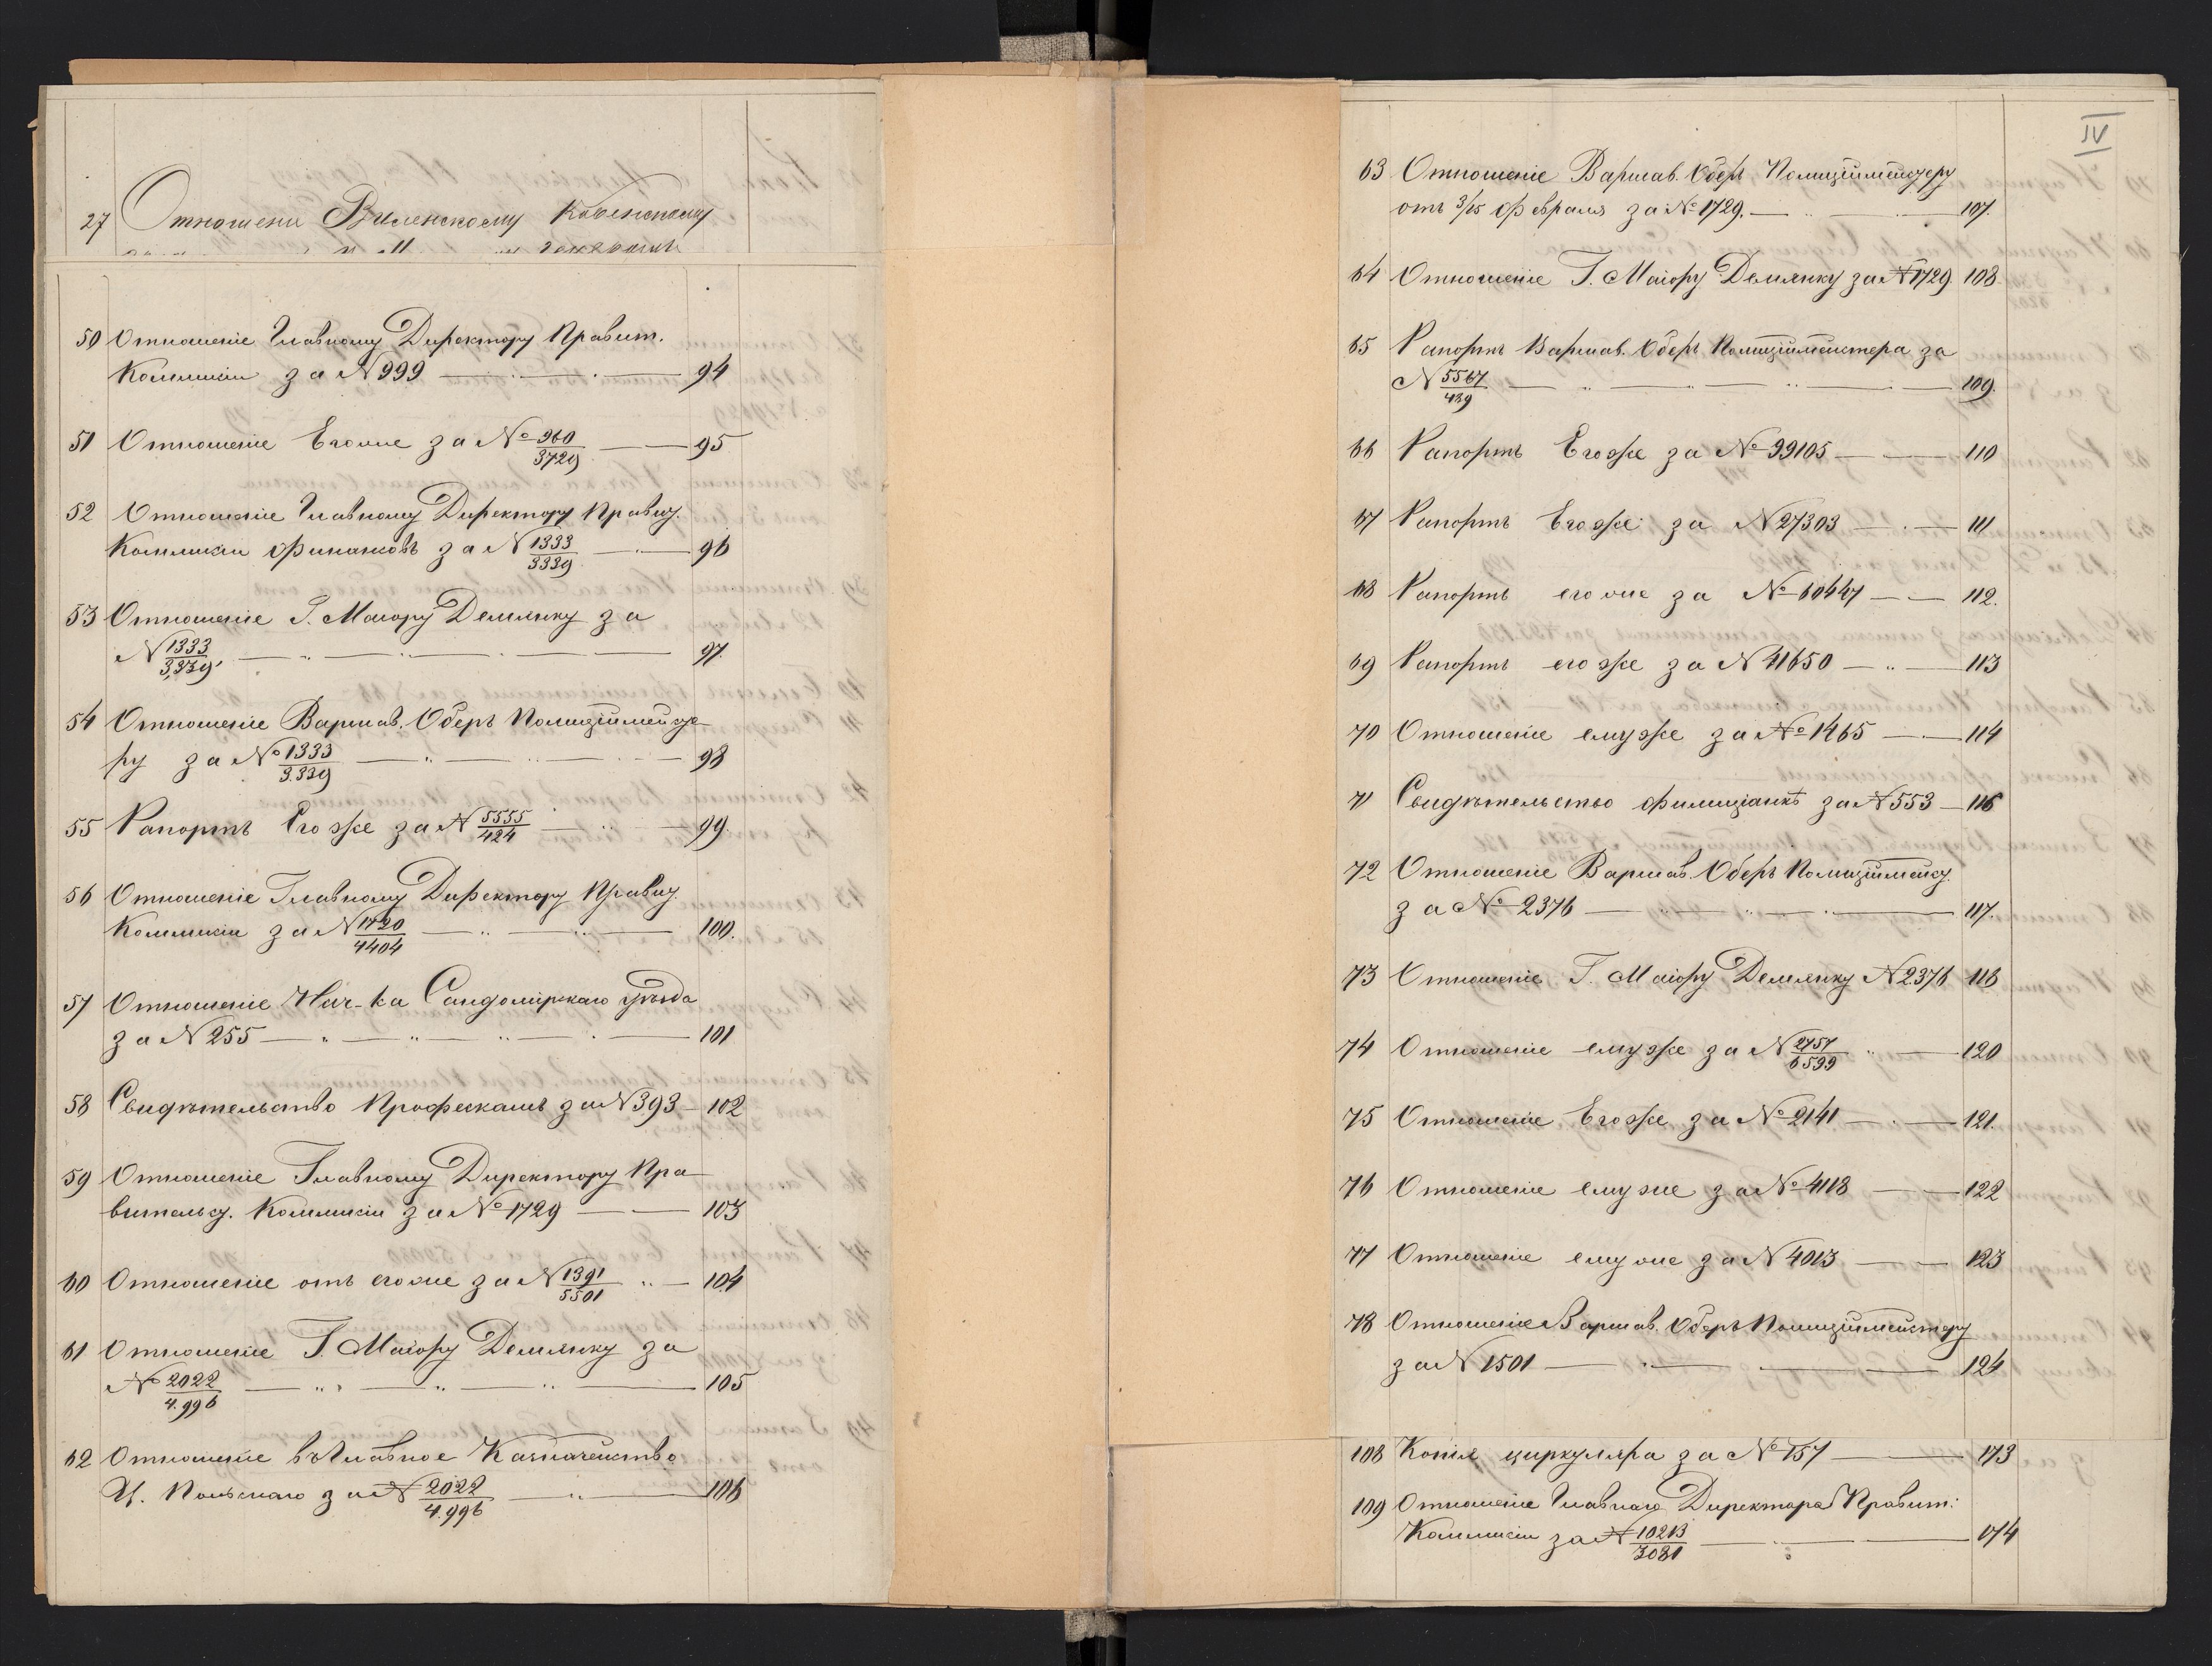 27 Отношени Виленскому Ковенскому
50 Отношеніе Главному Директору Правит.
Коммисіи за N 999 — 94
51 Отношеніе Егоже за № 960/3729 — 95
52 Отношеніе Главному Директору Правит.
Коммисіи Финансовъ за N 1333/3339 — 96
53 Отношеніе Г. Маіору Демянку за
N 1333/3,339 — 97.
54 Отношеніе Варшав. Оберъ Полиціймейсте-
ру за № 1333/3.339 — 98
55 Рапортъ Егоже за N 5555/424 — 99
56 Отношеніе Главному Директору Правит.
Коммисіи за N 1720/4404 — 100.
57 Отношеніе Нач-ка Сандомірскаго уѣзда
за N 255 — 101
58 Свидѣтельство за N 393 — 102
59 Отношеніе Главному Директору Пра-
вительст. Коммисіи за № 1729 — 103
60 Отношеніе отъ егоже за N 1391/5501 — 104
61 Отношеніе Г. Маіору Демянку за
№ 2022/4.996 — 105
62 Отношеніе въ Главное Казначейство
Ц. Польскаго за N 2022/4.996 — 106
IV
63 Отношеніе Варшав. Оберъ Полиціймейстеру
отъ 3/15 Февраля за № 1729. — 107.
64 Отношеніе Г. Маіору Демянку за N 1729. 108
65 Рапортъ Варшав. Оберъ Полиціймейстера за
N 5567/439 — 109.
66 Рапортъ Егоже за № 99105 — 110
67 Рапортъ Егоже за N 27303 — 111
68 Рапортъ егоже за № 60447 — 112.
69 Рапортъ егоже за N 41650 — 113
70 Отношеніе емуже за № 1465 — 114
71 Свидѣтельство за N 553 — 116
72 Отношеніе Варшав. Оберъ Полиціймейст.
за № 2376 — 117.
73 Отношеніе Г. Маіору Демянку N 2376 118
74 Отношеніе емуже за N 2757/6599 — 120
75 Отношеніе Егоже за № 2141 — 121.
76 Отношеніе емуже за № 4118 — 122
77 Отношеніе емуже за N 4013 — 123
78 Отношеніе Варшав. Оберъ Полиціймейстеру
за N 1501 — 124
108 Копія циркуляра за № 157 — 173
109 Отношеніе Главнаго Директора Правит:
Коммисіи за N 10213/3081 — 174